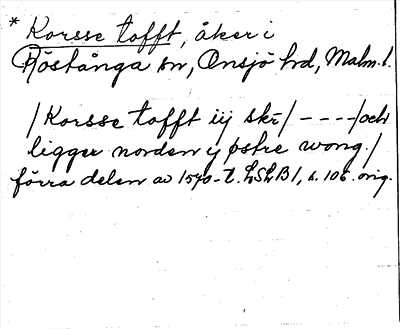 * Korsse tofft, åker i
Röstånga sn, Onsjö hd, Malm. l.
/Korsse tofft iij skr/ - - - -/och
ligger norden y østre wong./
förra delen av 1570-t. LSLB 1, s. 106. orig.